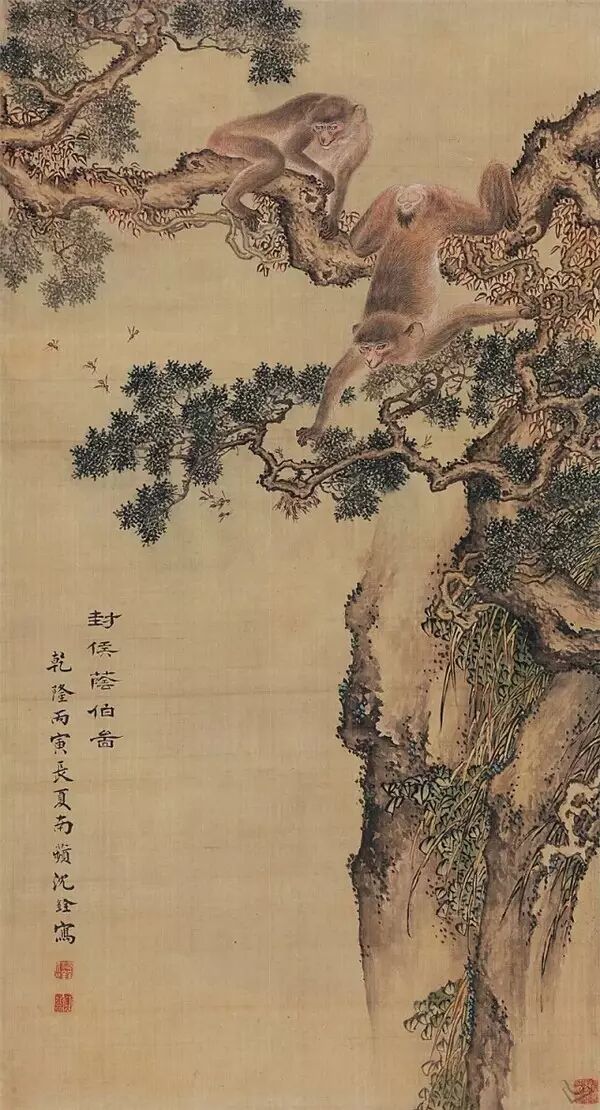 封侯蔭伯啚
乾隆丙寅長夏南蘋沈銓寫